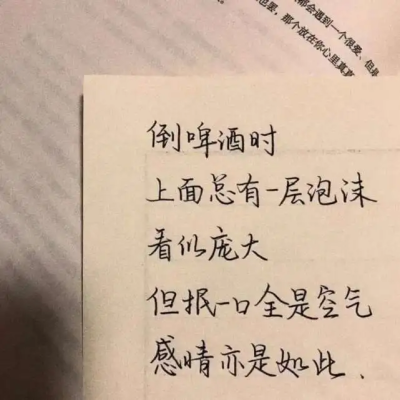 都会遇到一个很爱、但是
但是，那个放在你心里
倒啤酒时
上面总有一层泡沫
看似庞大
但抿一口全是空气
感情亦是如此、